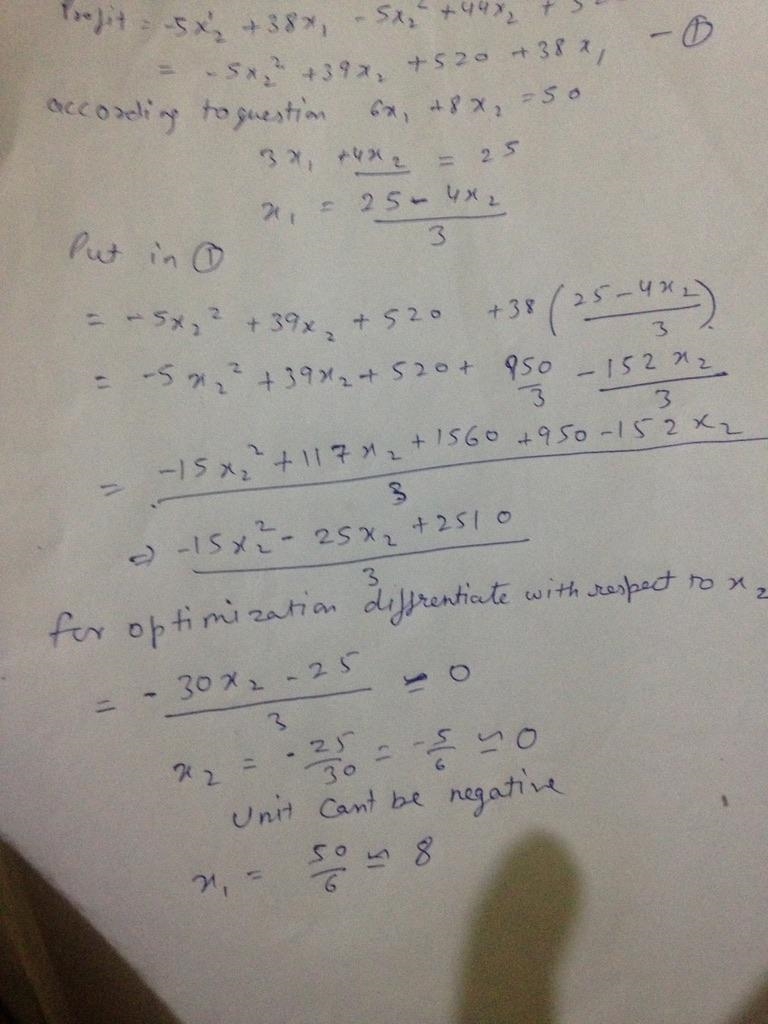 Profit = -5x₂² + 38x₁ - 5x₂² + 44x₂ +
= -5x₂² + 39x₂ + 520 + 38x₁ — ①
according to question 6x₁ + 8x₂ = 50
3x₁ + 4x₂ = 25
x₁ = (25 - 4x₂)/3
Put in ①
= -5x₂² + 39x₂ + 520 + 38((25 - 4x₂)/3)
= -5x₂² + 39x₂ + 520 + 950/3 - 152x₂/3
= (-15x₂² + 117x₂ + 1560 + 950 - 152x₂)/3
⇒ (-15x₂² - 25x₂ + 2510)/3
for optimization diffrentiate with respect to x₂
= (-30x₂ - 25)/3 = 0
x₂ = -25/30 = -5/6 ≃ 0
Unit cant be negative
x₁ = 50/6 ≃ 8